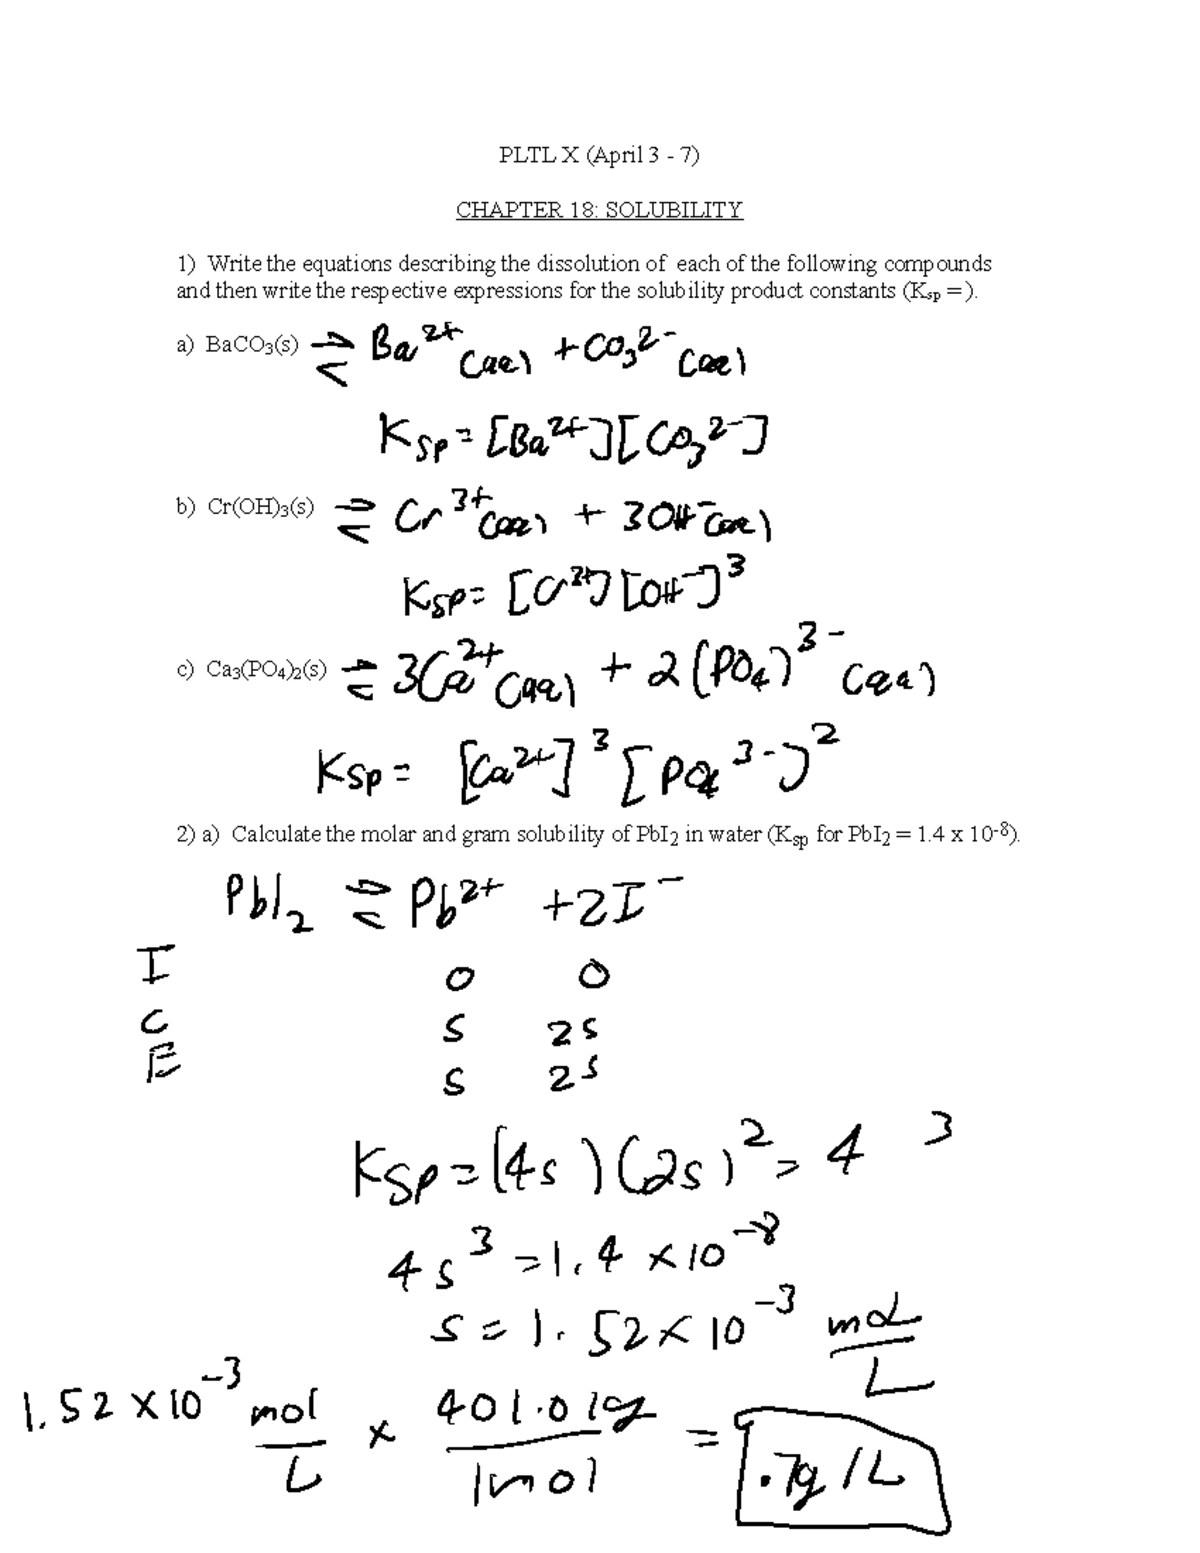 PLTL X (April 3 - 7)
CHAPTER 18: SOLUBILITY
1) Write the equations describing the dissolution of each of the following compounds
and then write the respective expressions for the solubility product constants (Ksp =).
a) BaCO3(s) ⇌ Ba²⁺(aq) + CO₃²⁻(aq)
Ksp = [Ba²⁺][CO₃²⁻]
b) Cr(OH)3(s) ⇌ Cr³⁺(aq) + 3OH⁻(aq)
Ksp = [Cr³⁺][OH⁻]³
c) Ca3(PO4)2(s) ⇌ 3Ca²⁺(aq) + 2(PO₄)³⁻(aq)
Ksp = [Ca²⁺]³[PO₄³⁻]²
2) a) Calculate the molar and gram solubility of PbI2 in water (Ksp for PbI2 = 1.4 x 10⁻⁸).
PbI₂ ⇌ Pb²⁺ + 2I⁻
I 0 0
C s 2s
E s 2s
Ksp = (4s)(2s)² = 4 ³
4s³ = 1.4 x 10⁻⁸
s = 1.52 x 10⁻³ mol/L
1.52 x 10⁻³ mol/L x 401.01g/1mol = .7g/L